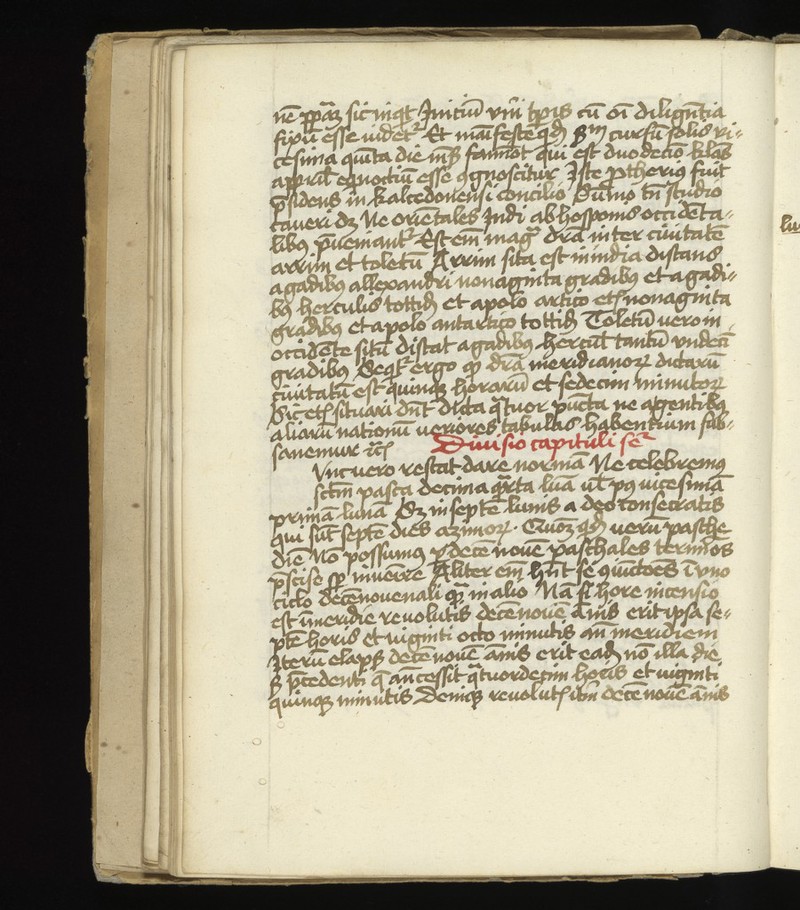 sic inqt Iniciū vnī tpis cū oī diligētia
fixū esse uidet Et manifeste qd Sm cursū solis vi-
cesima quīta die mēs famōt qui est duodecīo kłas
april equoctiū esse cognoscitur Iste ptherius fuit
psidens in kalcedonensi concilio Sūmo tn studio
caueri dz Ne orientales Indi ab hosponis occidēta-
libus pueniant Est em mag drā inter ciuitatē
arrim et toletū Arrim sita est in india distans
a gadibus allexandri nonaginta gradibus et a gadi-
bus herculis tottid et a polo artico et nonaginta
gradibus et a polo antartico tottid Toletū vero in
occidēte situ distat a gadibus hercul tantū vndeci
gradibus Seqt ergo qp drā meridianor dictarū
ciuitatū est quinqz horarū et sedecim minutor
Sic etz situari dnt dicta qtuor pūcta ne agentibus
aliarū nationū veriores tabulas habentium sub-
sanemur Divisio capituli se
Vnc vero restat dare normā Ne celebremus
sctm pasca decima qrta luā ul pus vicesimā
primā lunā Sz in septē lunis a deo consecratis
qui sūt septē dies azimor. Quoz qd verū pasche
diē Nō possumus p decē nouē paschales termios
pscise sp inuenire Aliter em hnt se coniūctōes ī vno
ciclo decēnouenali qz in alio Nā si hore incensio
est ī meridie reuolutis decēnouē ānis erit ipsa se-
ptē horis et viginti octo minutis an meridiem
Iterū elaps decēnouē ānis erit ead nō illa die
s pcedenti q ancessit qtuordecim horis et viginti
quinqz minutis Deniqz reuolut ibm decēnouē ānis